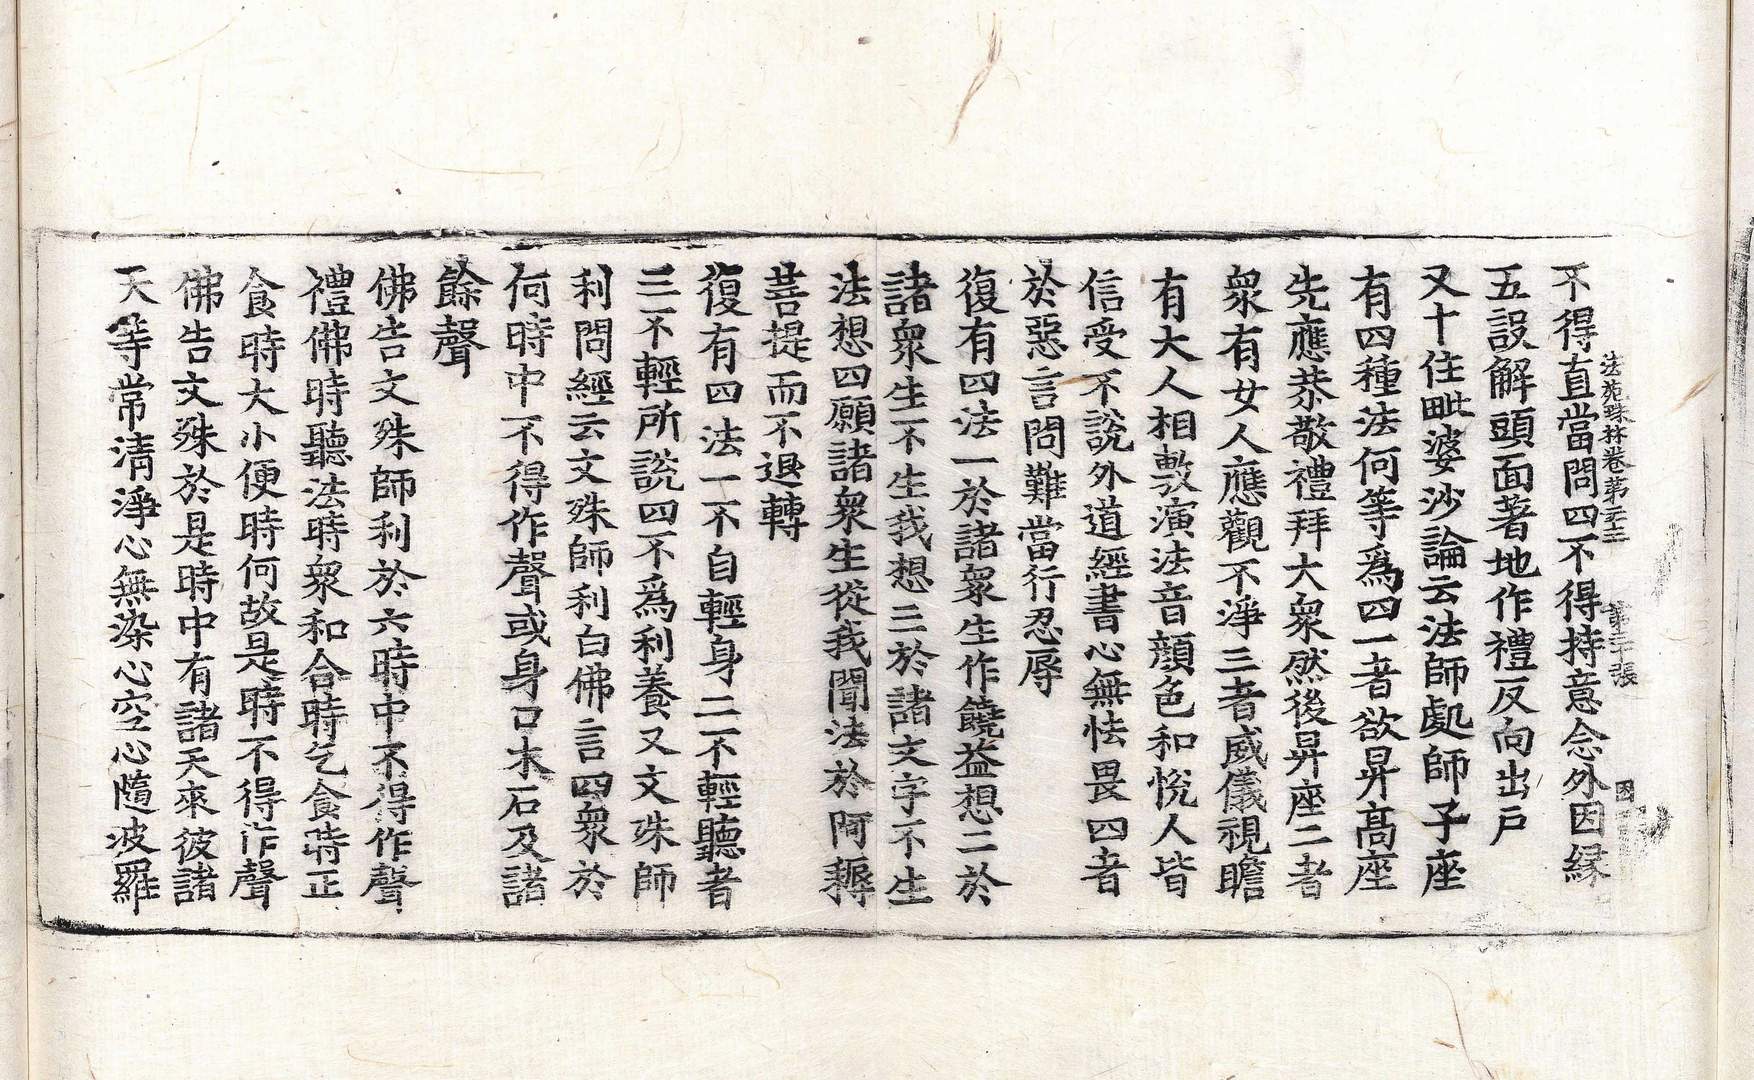 法苑珠林卷第二十三 第三十張 困
不得直當問四不得持意念外因緣
五設解頭面著地作禮反向出戶
又十住毗婆沙論云法師處師子座
有四種法何等爲四一者欲昇高座
先應恭敬禮拜大衆然後昇座二者
衆有女人應觀不淨三者威儀視瞻
有大人相敷演法音顏色和悅人皆
信受不說外道經書心無怯畏四者
於惡言問難當行忍辱
復有四法一於諸衆生作饒益想二於
諸衆生不生我想三於諸文字不生
法想四願諸衆生從我聞法於阿耨
菩提而不退轉
復有四法一不自輕身二不輕聽者
三不輕所說四不爲利養又文殊師
利問經云文殊師利白佛言四衆於
何時中不得作聲或身口木石及諸
餘聲
佛告文殊師利於六時中不得作聲
禮佛時聽法時衆和合時乞食時正
食時大小便時何故是時不得作聲
佛告文殊於是時中有諸天來彼諸
天等常清淨心無染心空心隨波羅